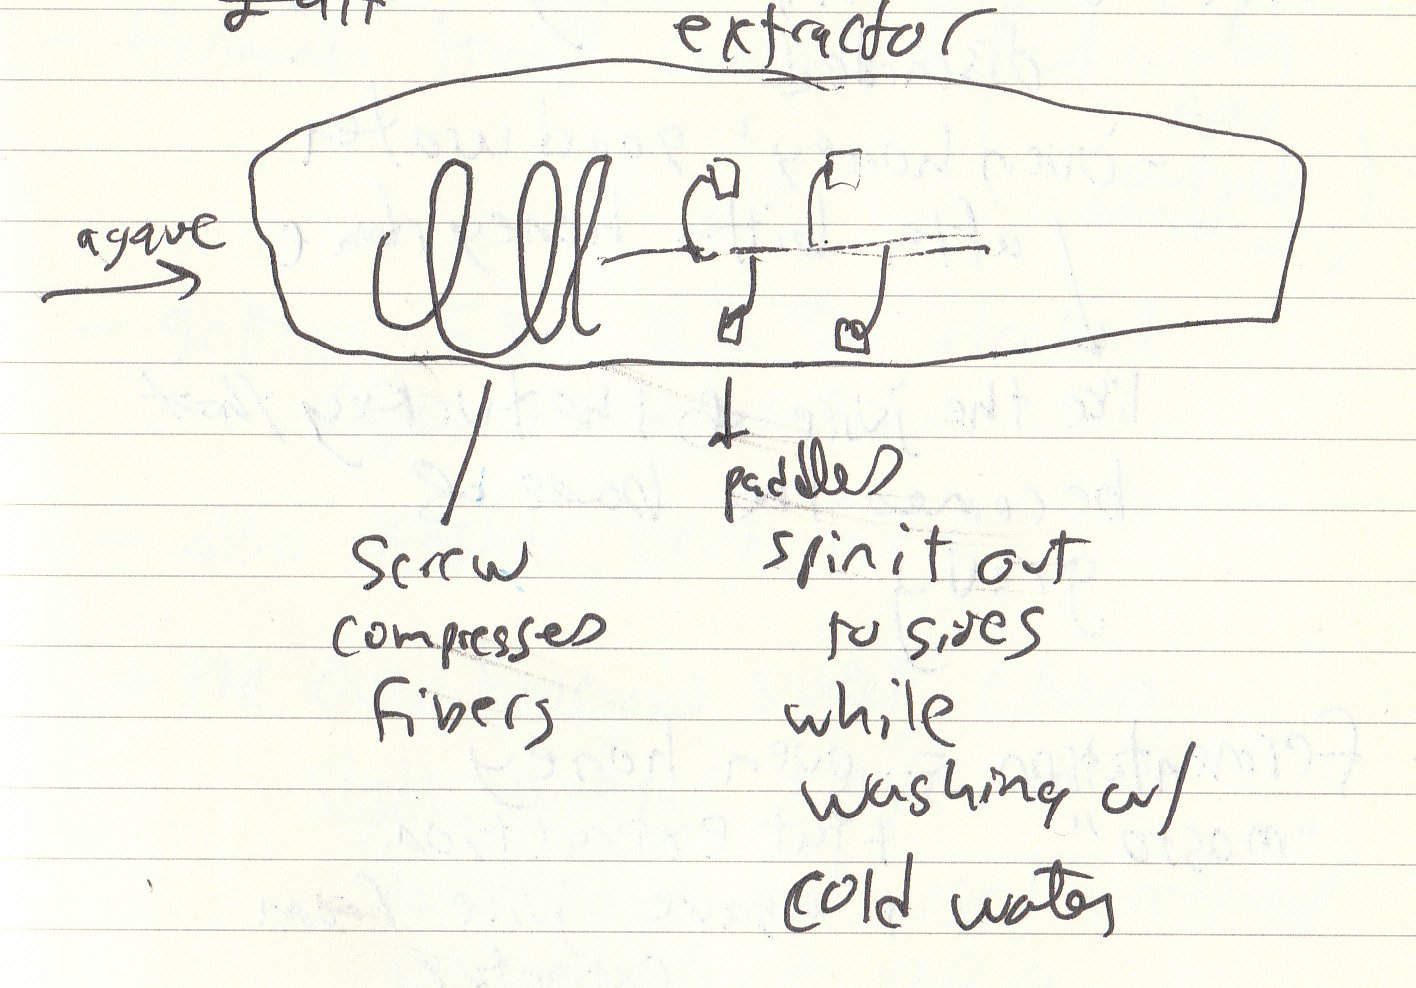 extractor
agave
paddles
Screw
compresses
fibers
spin it out
to sides
while
washing w/
cold water